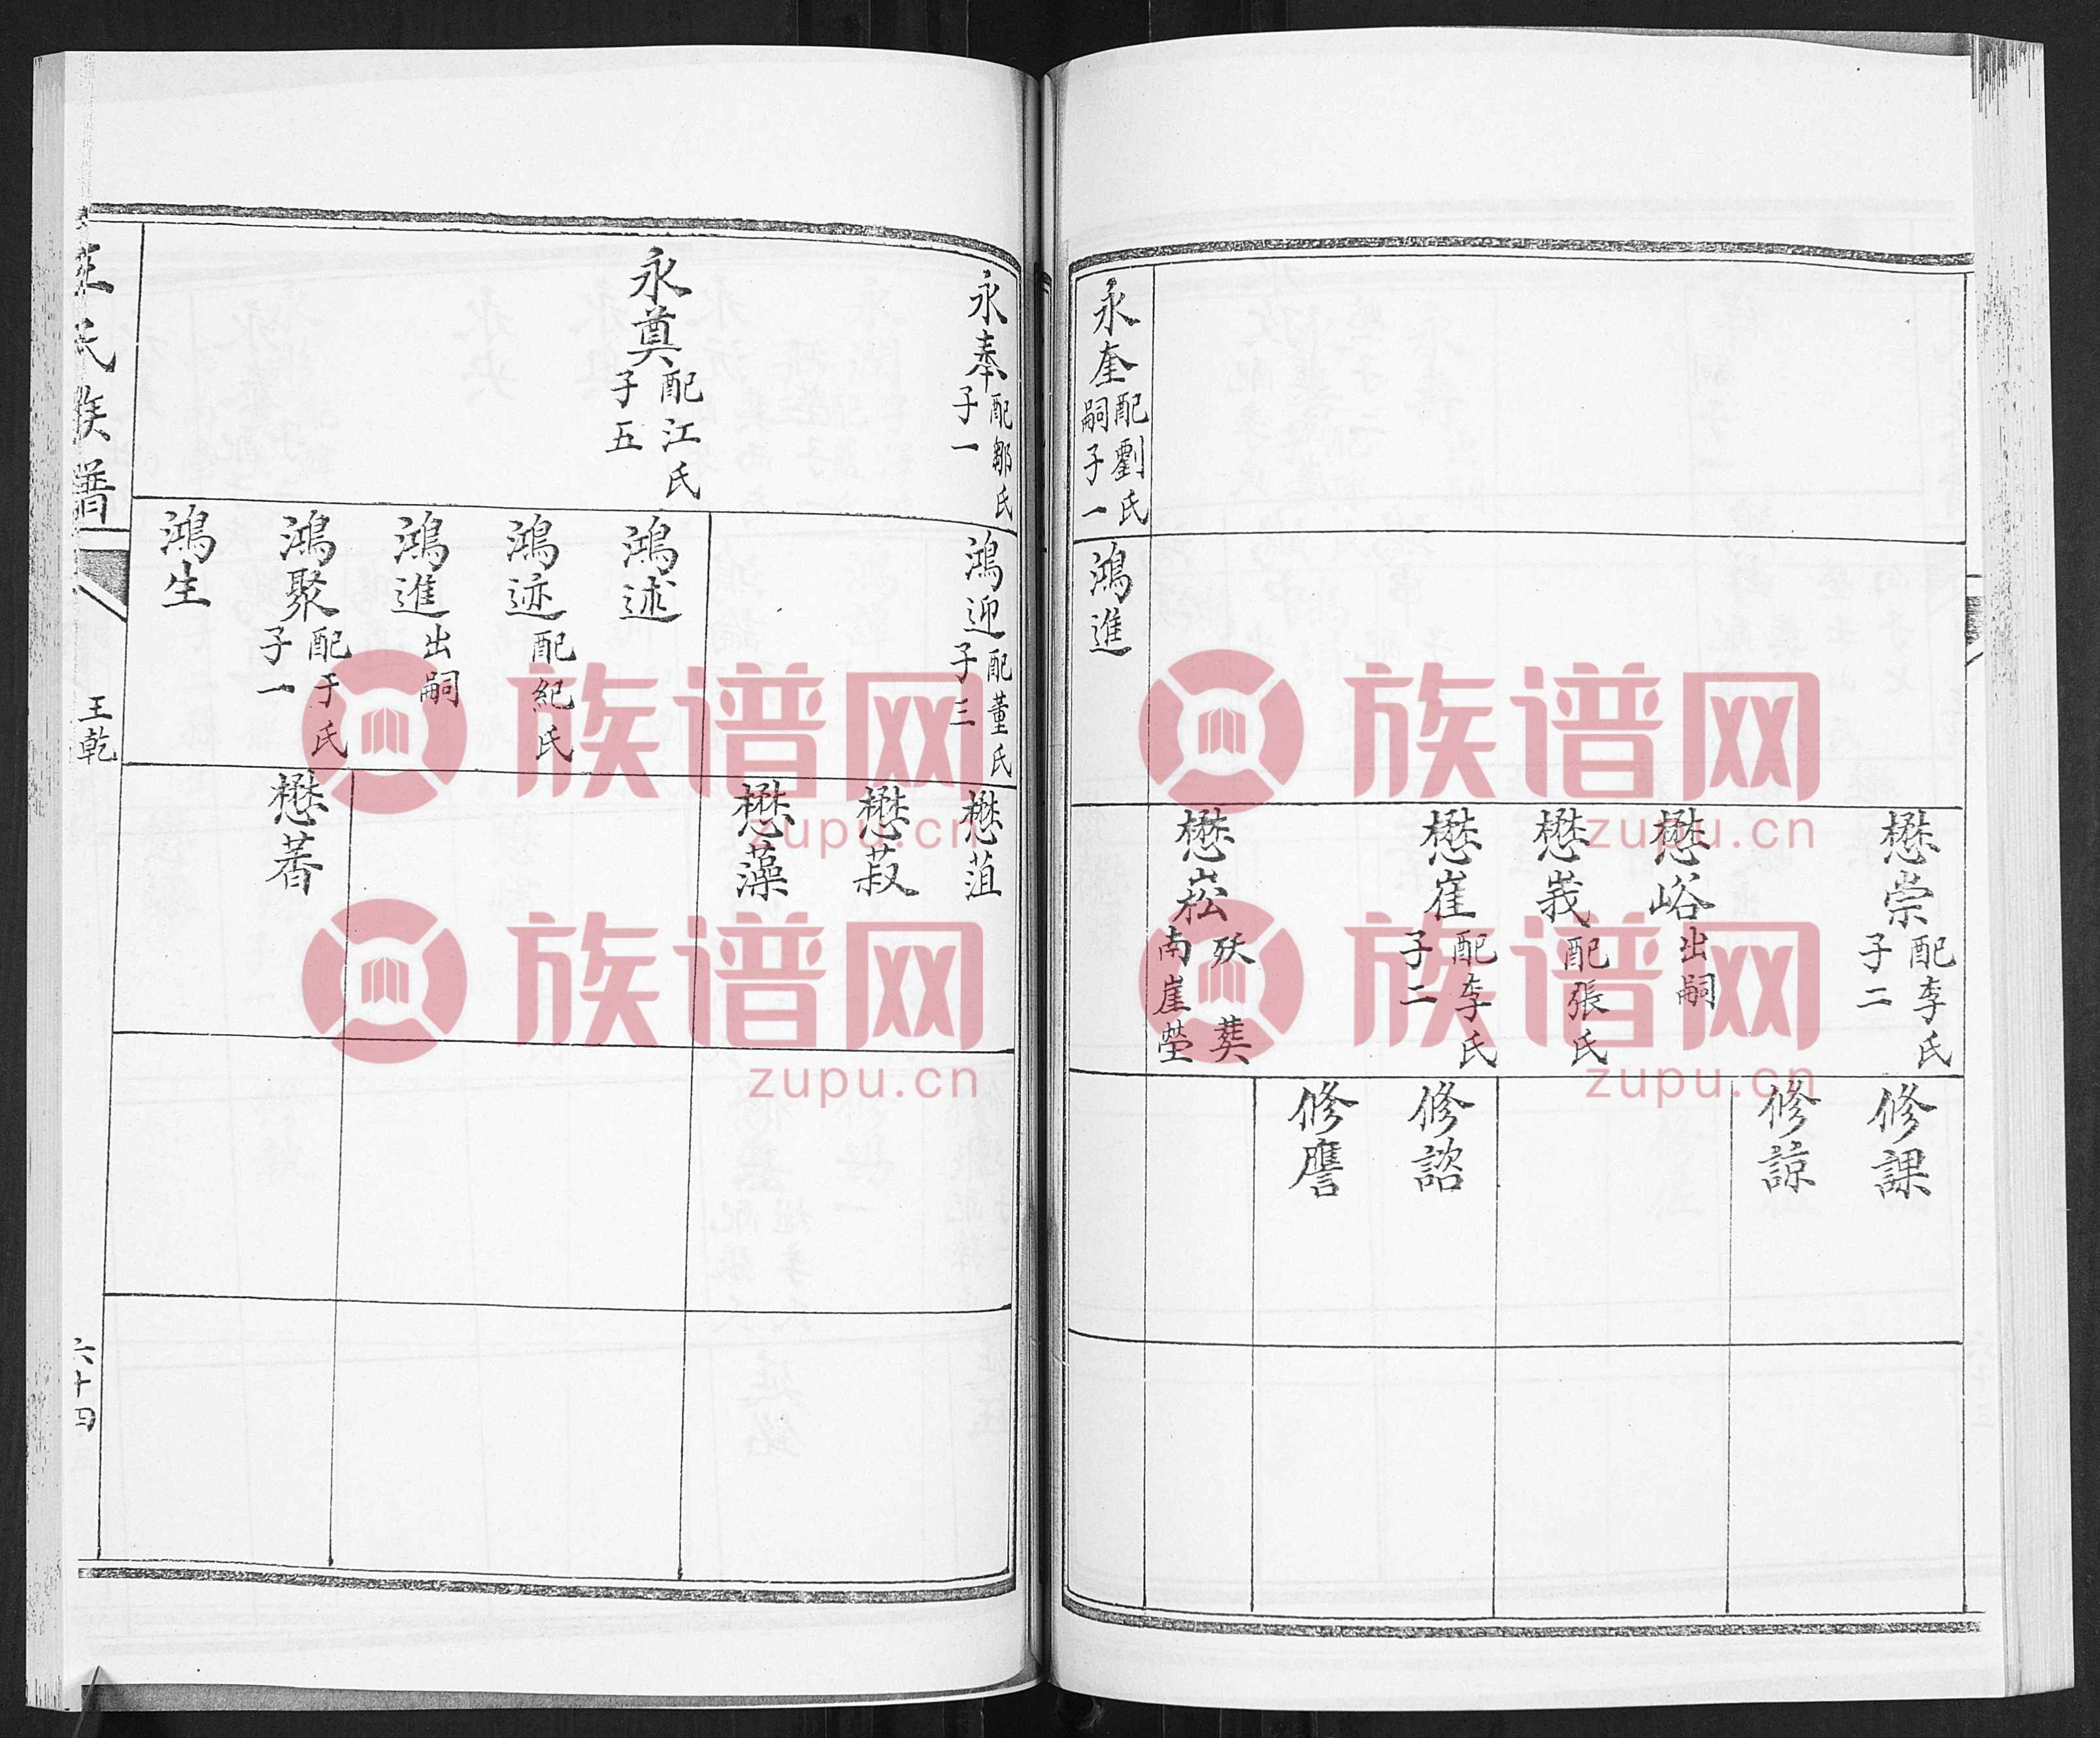 永奎 配劉氏 嗣子一
鴻進
懋崇 配李氏 子二
懋峪 出嗣
懋峩 配張氏
懋崔 配李氏 子二
懋崧 殀 葬南崖塋
修課
修諒
修詔
修譍
永奉 配鄒氏 子一
永奠 配江氏 子五
鴻迎 配董氏 子三
鴻述
鴻迹 配紀氏
鴻進 出嗣
鴻聚 配于氏 子一
鴻生
懋菹
懋菽
懋藻
懋萫
王氏族譜
王乾
六十四
族谱网
zupu.cn
族谱网
zupu.cn
族谱网
zupu.cn
族谱网
zupu.cn